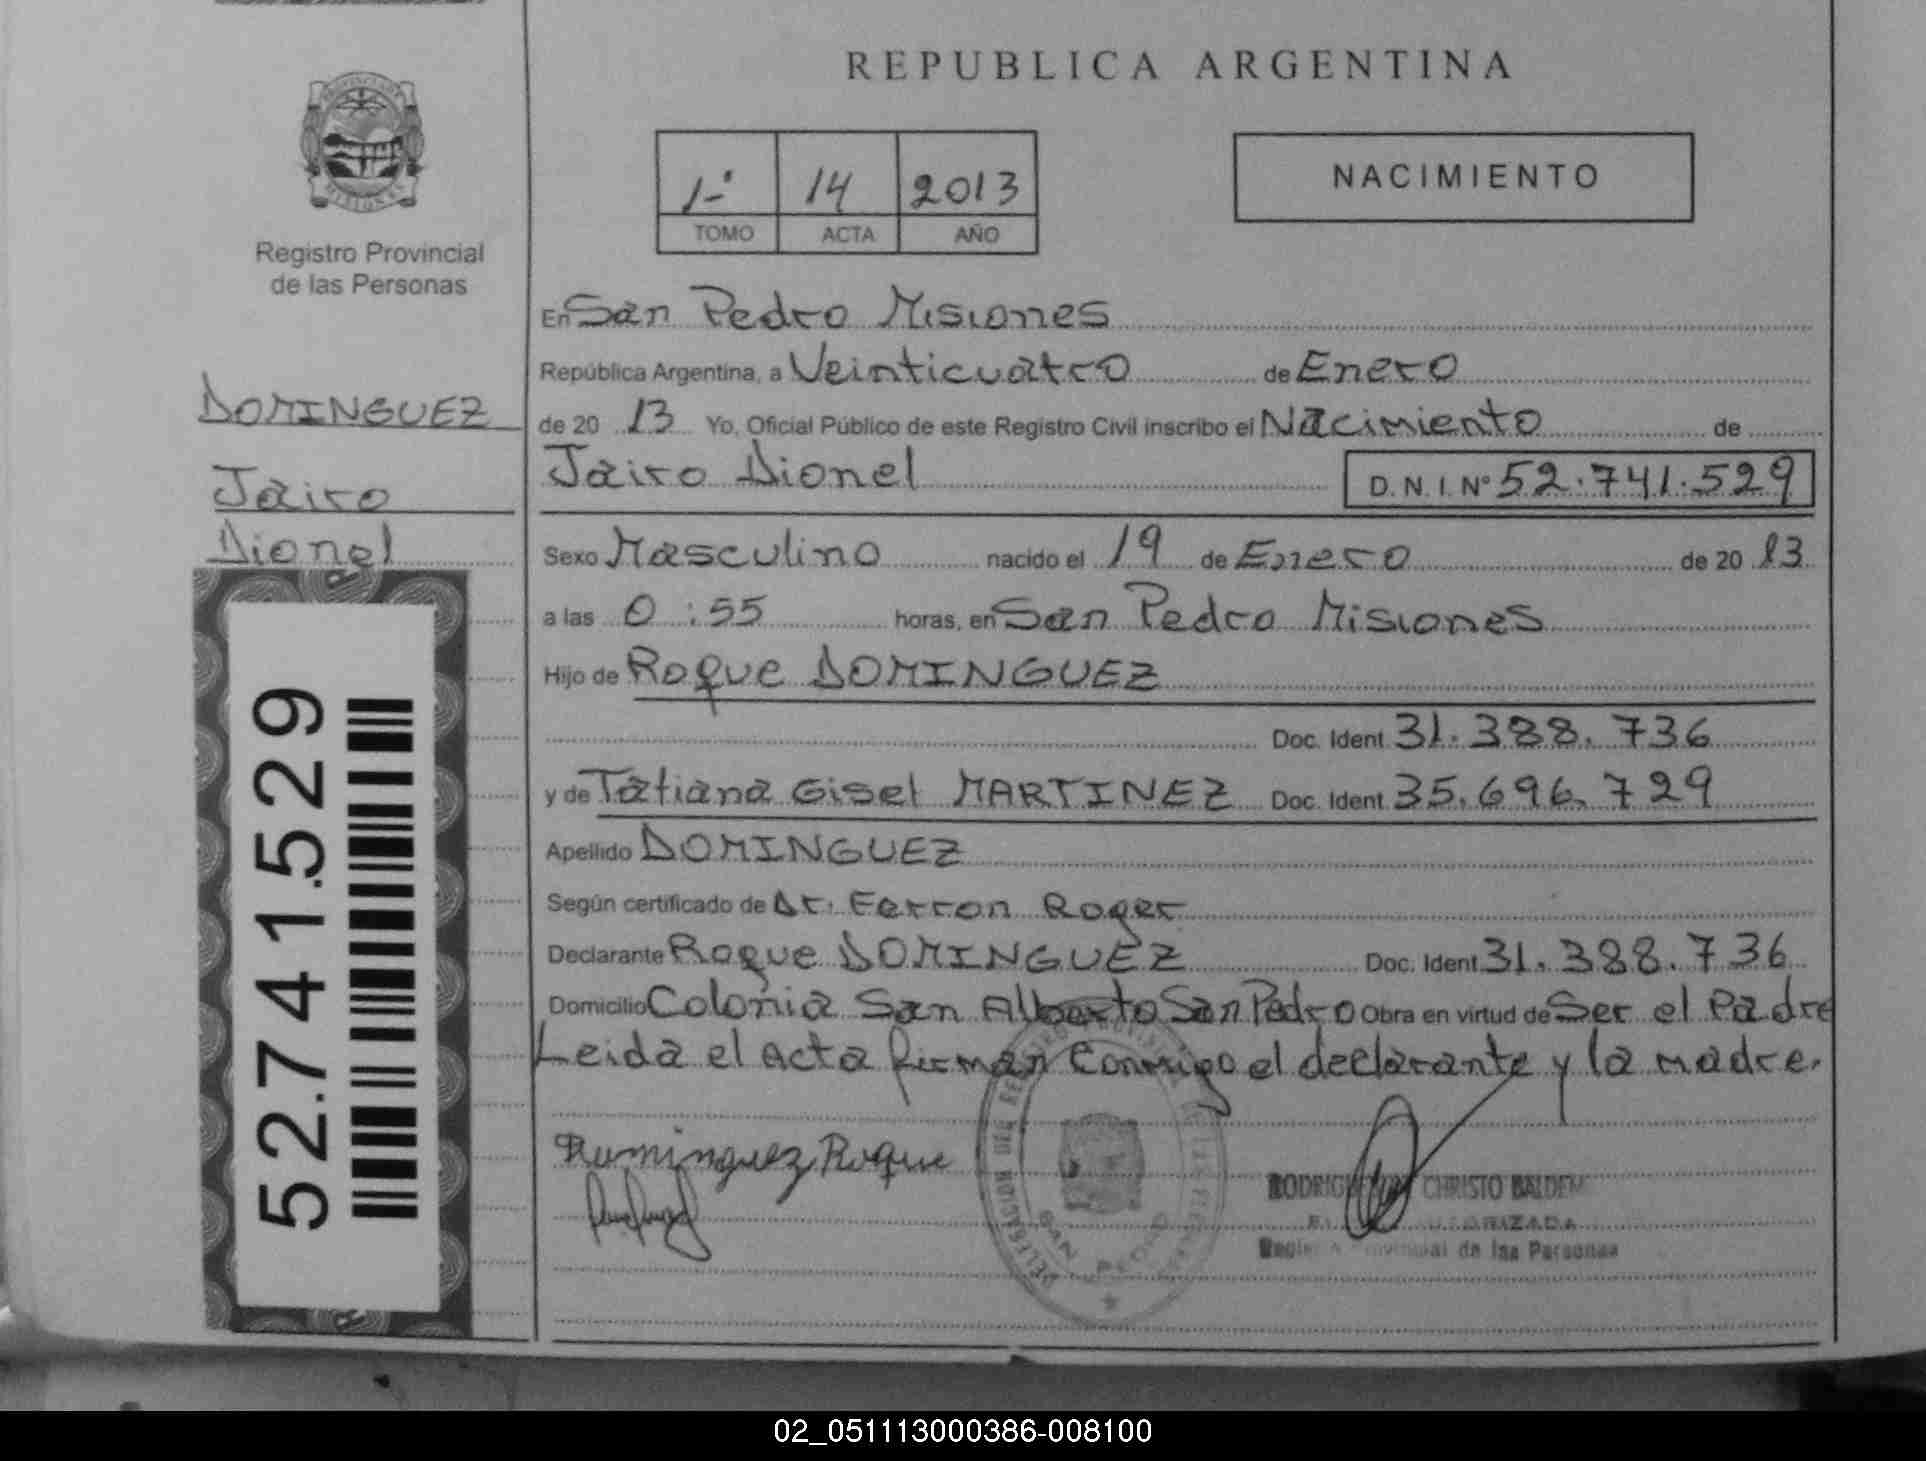 REPUBLICA ARGENTINA
PROVINCIA DE MISIONES
Registro Provincial
de las Personas
1-° 14 2013
TOMO ACTA AÑO
NACIMIENTO
DOMINGUEZ
Jairo
Dionel
52.741.529
En San Pedro Misiones
República Argentina, a Veinticuatro de Enero
de 20 13 Yo, Oficial Público de este Registro Civil inscribo el Nacimiento de
Jairo Dionel D.N.I. N° 52.741.529
Sexo Masculino nacido el 19 de Enero de 20 13
a las 0:55 horas, en San Pedro Misiones
Hijo de Roque DOMINGUEZ
Doc. Ident 31.388.736
y de Tatiana Gisel MARTINEZ Doc. Ident 35.696.729
Apellido DOMINGUEZ
Según certificado de Dr. Ferron Roger
Declarante Roque DOMINGUEZ Doc. Ident 31.388.736
Domicilio Colonia San Alberto San Pedro Obra en virtud de Ser el Padre
Leida el Acta firman Conmigo el declarante y la madre.
Dominguez Roque
DELEGACION DEL REGISTRO
SAN PEDRO
CHRISTO
Provincial de las Personas
02_051113000386-008100